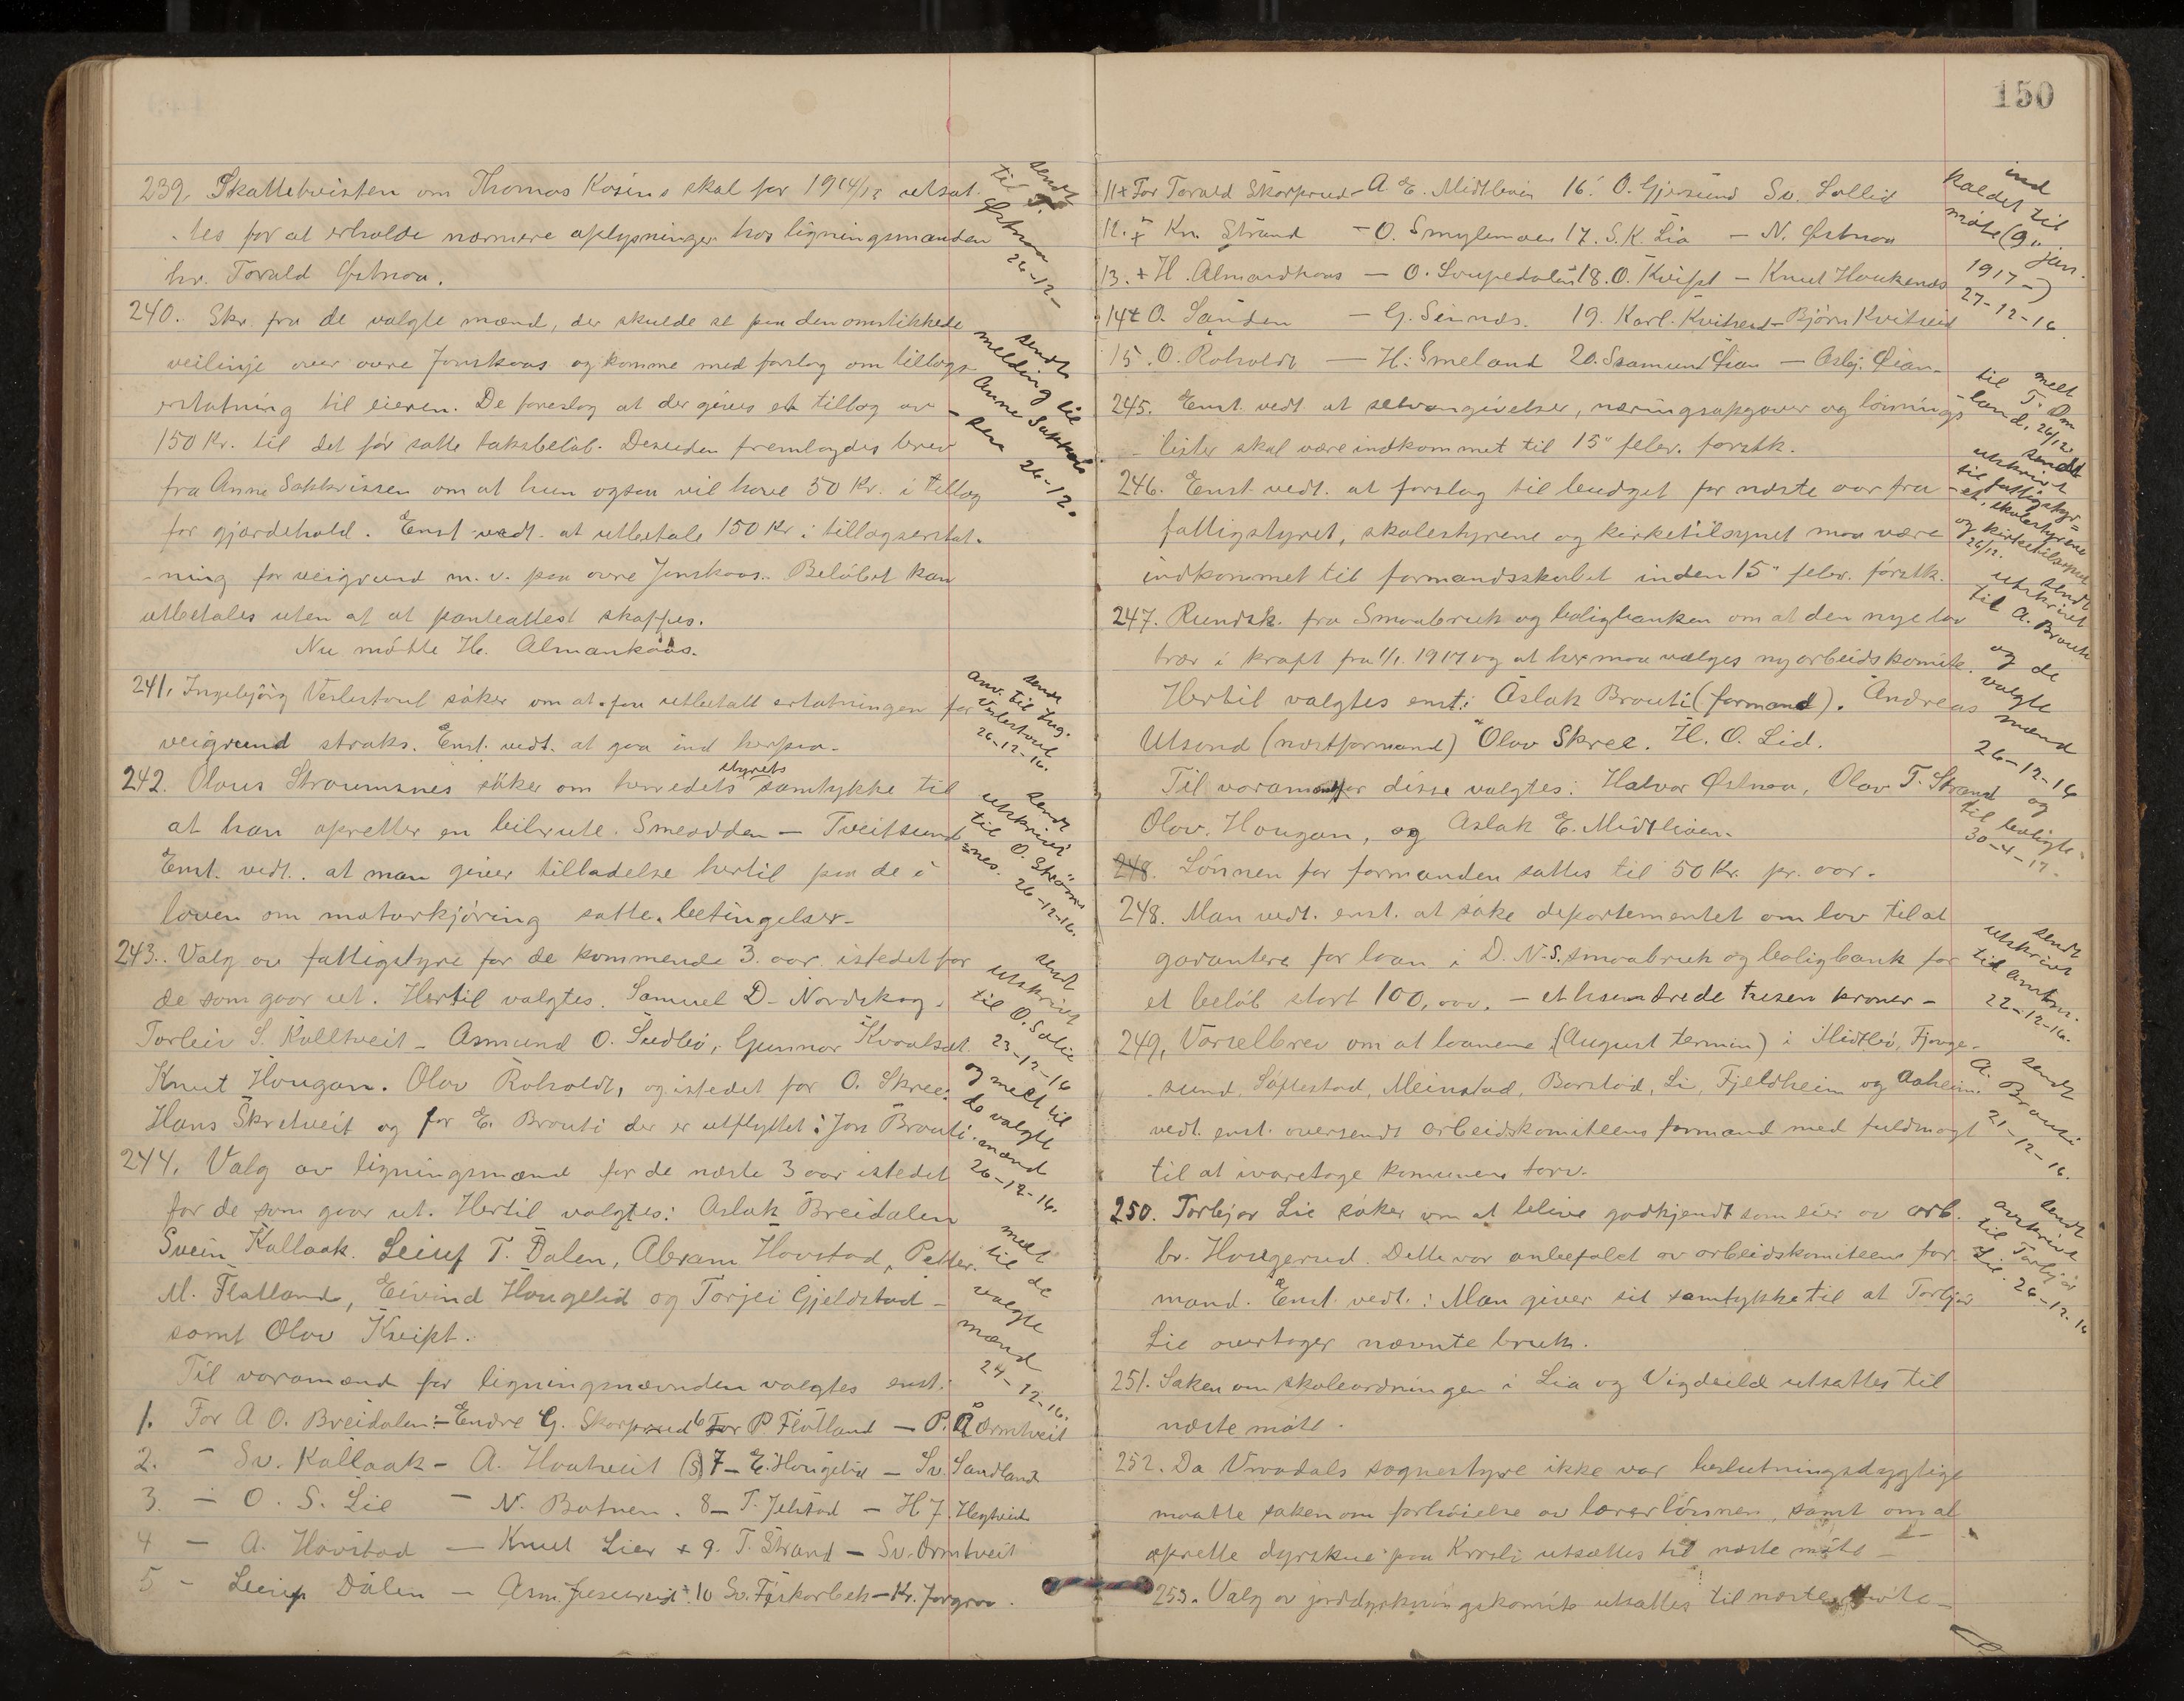 239. Skattetvisten om Thomas Kosins skal for 1914/15 utsat-
-tes for at erholde nærmere oplysninger hos ligningsmanden
hr. Torvald Østnoa.
240. Skr. fra de valgte mænd, der skulde se paa den omstikkede
veilinje over øvre Jonskaas og komme med forslag om tillægs-
erstatning til eieren. De foreslog at der gives et tillæg av
150 Kr. til det før satte taksbeløb. Desuden fremlagdes brev
fra Anne Sakkrissen om at hun ogsaa vil have 50 Kr. i tillæg
for gjærdehold. Enst. vedt. at utbetale 150 Kr i tillægserstat-
-ning for veigrund m. v. paa øvre Jonskaas. Beløbet kan
utbetales uten at at panteattest skaffes.
Nu møtte H. Almankaas.
241. Ingebjørg Veslestoul søker om at faa utbetalt erstatningen for
veigrund straks. Enst. vedt. at gaa ind herpaa.
242. Olous Stroumsnes søker om herredets styrets samtykke til
at han opretter en bilrute. Smeodden — Tveitsund
Enst. vedt. at man giver tilladelse hertil paa de i
loven om motorkjøring satte betingelser.
243. Valg av fattigstyre for de kommende 3. aar istedet for
de som gaar ut. Hertil valgtes. Samuel D. Nordskog.
Torleiv S. Kolltveit - Asmund O. Sudbø, Gunnar Kvaalsæt
Knut Hougan. Olav Roholdt, og istedet for O. Skree:
Hans Skretveit og for E. Brouti der er utflyttet: Jon Brouti.
244. Valg av ligningsmænd for de næste 3 aar istedet
for de som gaar ut. Hertil valgtes: Aslak Breidalen
Svein Kallaak. Leiuf T. Dalen, Abram Hovstad, Petter
M. Flatland, Eivind Hougelid og Torjei Gjeldstad -
samt Olav Kvipt.
Til varamænd for ligningsnævnden valgtes enst.
1. For A O. Breidalen:- Endre G. Skarprud 6 For P. Flatland — P. A Ormtveit
2. - Sv. Kallaak - A. Hoatveit (s) 7 - E. Hougelid - Sv. Sandland
3. - O. S. Lie - N. Botnen. 8 - T. Jelstad - H J. Hegtveit
4 - A. Hovstad — Knut Lier + 9. T. Strand - Sv. Ormtveit
5 - Leiuf Dalen - Asm. + 10 Sv. Fiskarbek - Kr. Jorgroa.
sendt
til T.
Østnoa
26-12-
sendt
melding til
Anne Sakkris
-sen 26-12.
sendt
anv. til Ing.
Veslestoul
26-12-16.
sendt
utskrivt
til O. Strøms
=nes. 26-12-16.
sendt
utskrivt
til O. Solie
23-12-16
og melt til
de valgte
mænd
26-12-16.
melt
til de
valgte
mænd
24-12-16.
150
11 + For Torvald Skarprud - A E. Midtbøen 16. O. Gjersund Sv. Sollid
12. + Kn. Strand - O. Smylemoen 17. S. K. Lia - N. Østnoa
13. + H. Almandkaas — O. Soupedalen 18. O. Kvipt - Knut Houkenæs
14 + O. Sanden - G. Seinnes. 19. Karl. Kvitseid - Bjørn Kvitseid
15. O. Roholdt — H. Smeland 20. Saamund Øian — Asbj. Øian-
245. Enst. vedt. at selvangivelser, næringsopgaver og lønnings-
- lister skal være indkommet til 15" febr. førstk.
246. Enst. vedt. at forslag til budget for næste aar fra
fattigstyret, skolestyrene og kirketilsynet maa være
indkommet til formandsskabet inden 15" febr. førstk.
247. Rundsk. fra Smaabruk og boligbanken om at den nye lov
træ i kraft fra 1/1. 1917 og at her maa vælges ny arbeidskomite.
Hertil valgtes enst: Aslak Brouti (formand). Andreas
Utsond (næstformand) Olav Skree. H. O. Lid.
Til varamænd for disse valgtes: Halvor Østnoa, Olav T. Strand
Olav. Hougan, og Aslak E. Midtbøen.
248. Lønnen for formanden sattes til 50 Kr. pr. aar.
248. Man vedt. enst. at søke departementet om lov til at
garantere for loan i D. N. S. smaabruk og boligbank for
et beløb stort 100,000. - et hundrede tusen kroner -
249. Varselbrev om at loanene (August termin) i Midtbø, Fjouge-
sund, Søftestad, Meinstad, Borstad, Li, Fjeldheim og Aaheim.
vedt. enst. oversendt arbeidskomiteens formand med fuldmagt
til at ivaretage komunens tarv.
250. Torbjør Lie søker om at blive godkjendt som eier av arb.
br. Hougerud. Dette var anbefalet av arbeidskomiteens for-
mand. Enst. vedt.: Man giver sit samtykke til at Torbjør
Lie overtager nævnte bruk.
251. Saken om skoleordningen i Lia og Vigdeild utsattes til
næste møte.
252. Da Vraadals sognestyre ikke var beslutningsdygtige
maatte saken om forhøielse av lærerlønnen, samt om at
oprette dyrskue paa Kvæsli utsættes til næste møte -
253. Valg av jorddyrkningskomite utsattes til næste møte -
ind
kaldet til
møte (9. jan.
1917-)
27-12-16.
melt
til T. Øm
-land. 26/12
sendt
utskrivt
til fattigsty=
-et, skolestyrene
og kirketilsynet
26/12.
sendt
utskrivt
til A. Brouti
og de
valgte
mænd
26-12-16
og
til
30-4-17.
sendt
utskrivt
til amtm.
22-12-16.
sendt
A. Brouti
21-12-16.
sendt
avskrivt
til Torbjør
Lie. 26-12-16